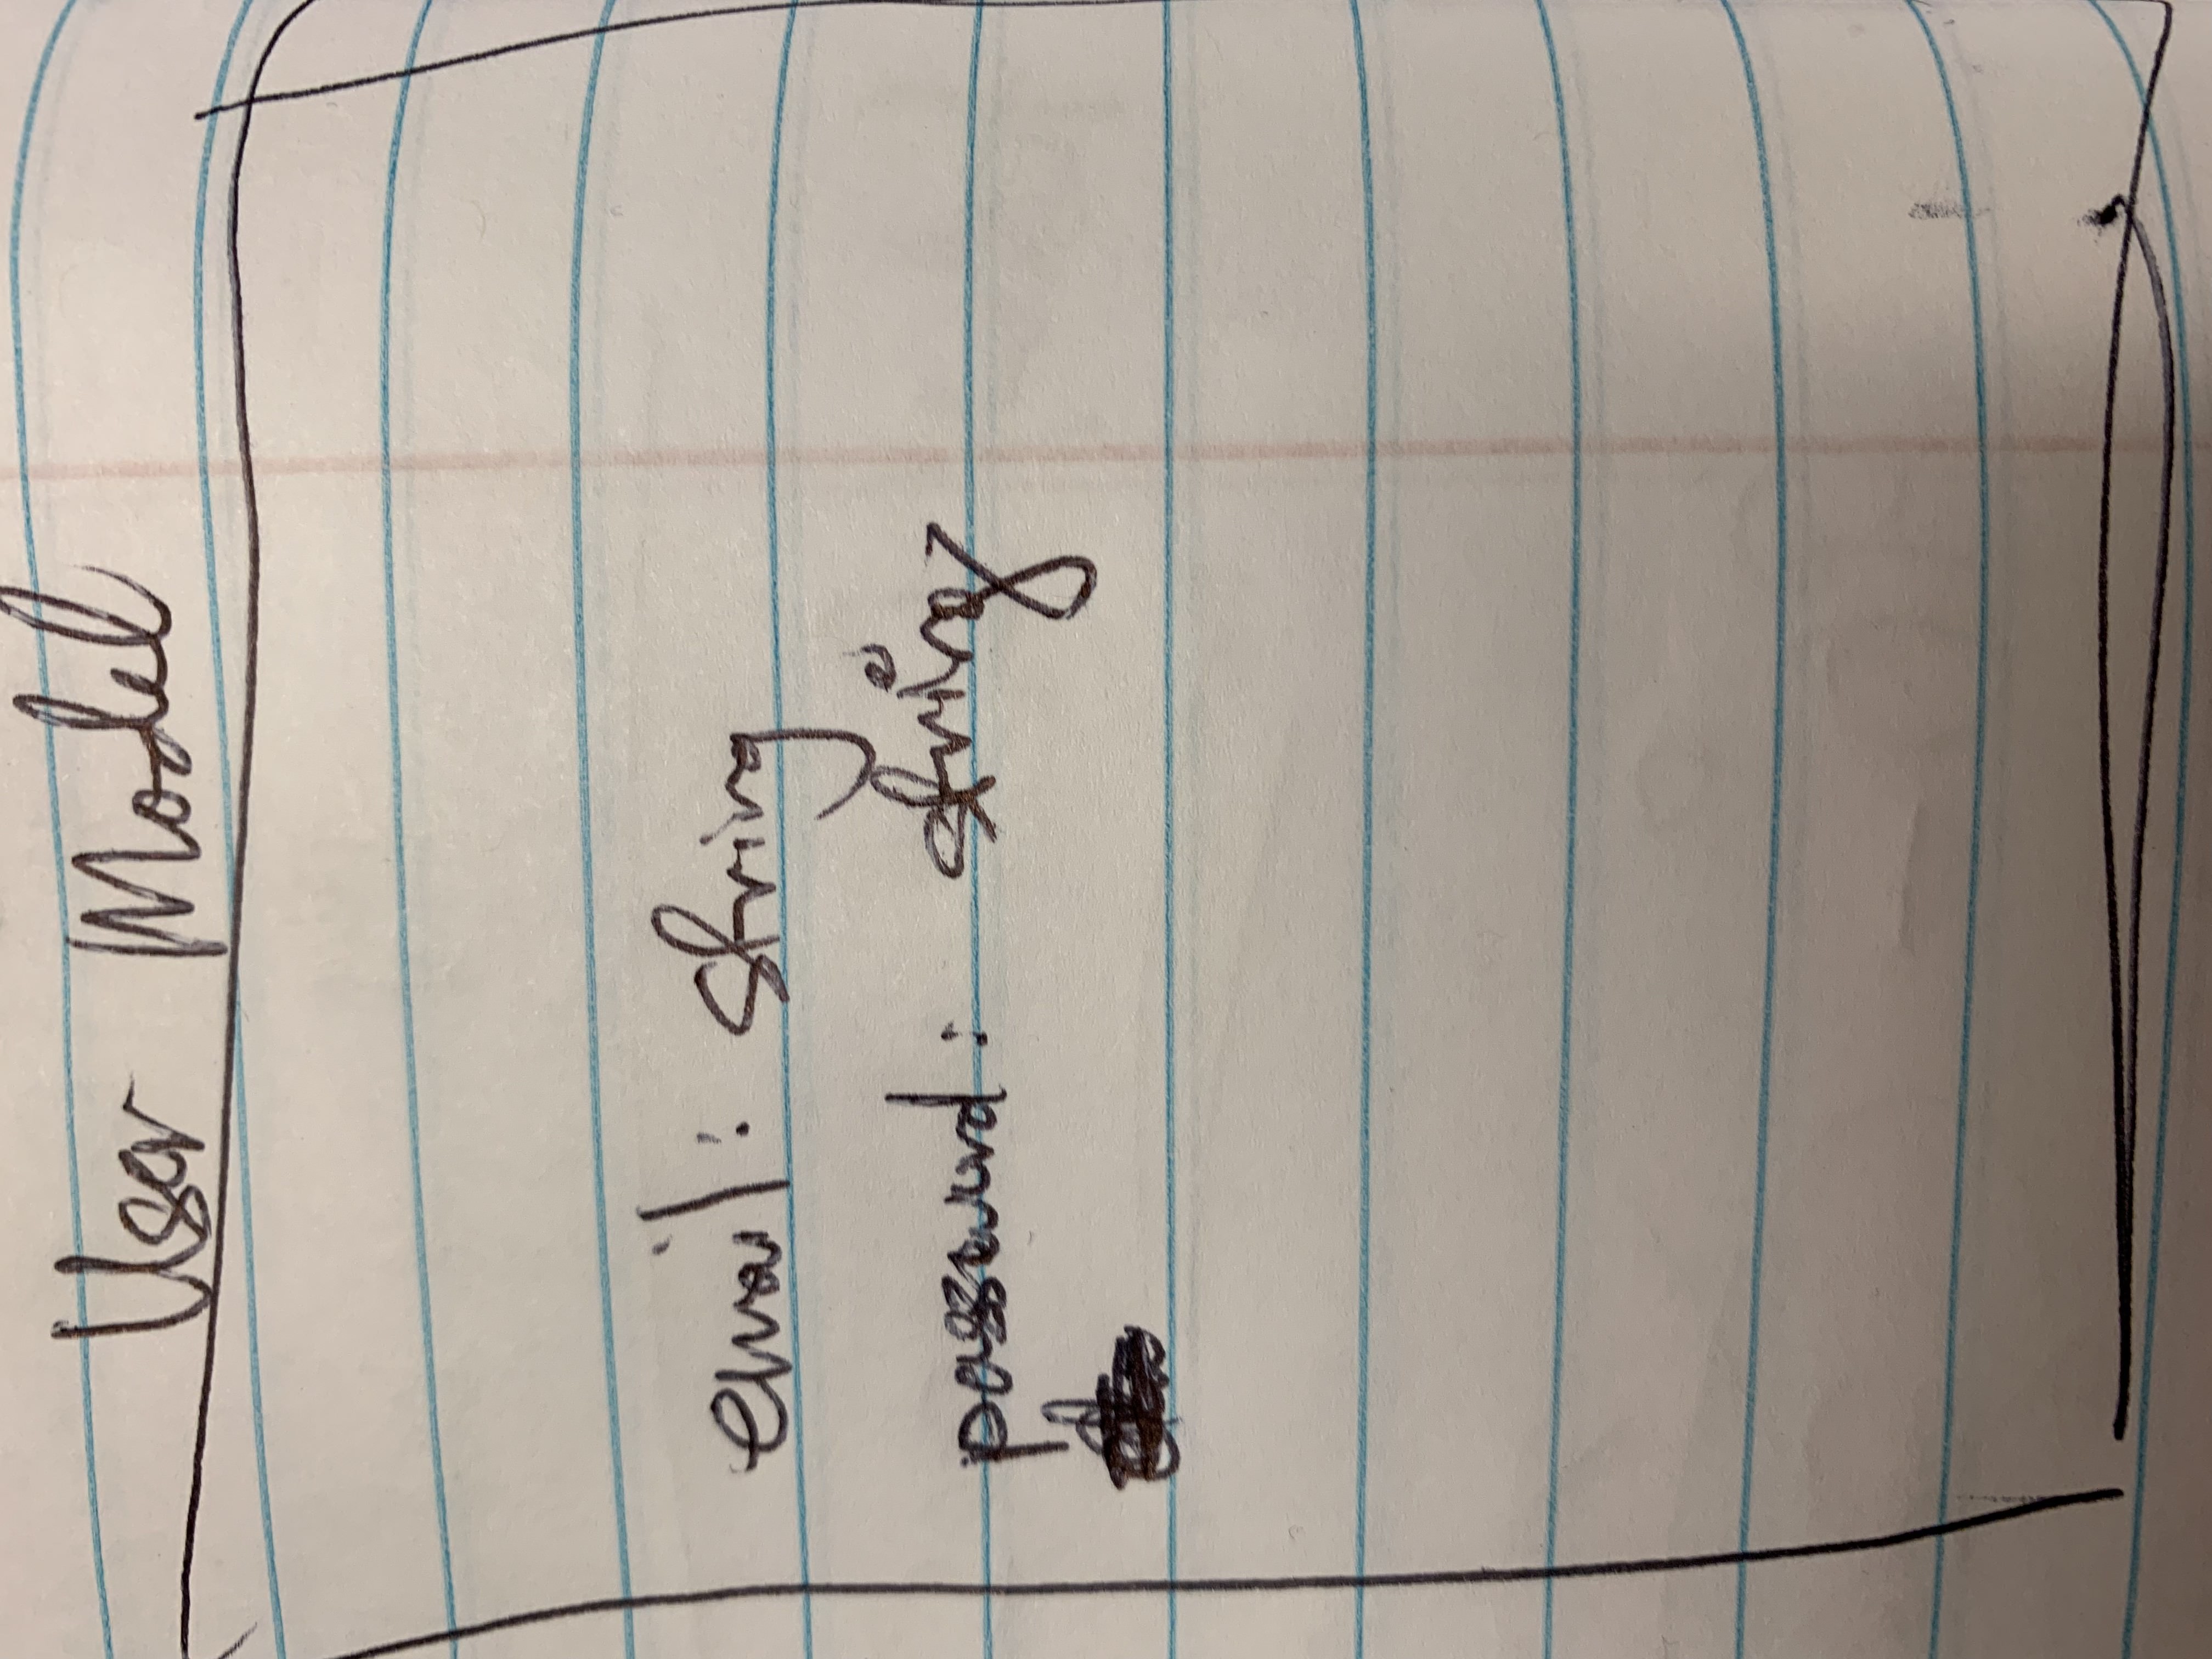 User Model
email: string
password: string